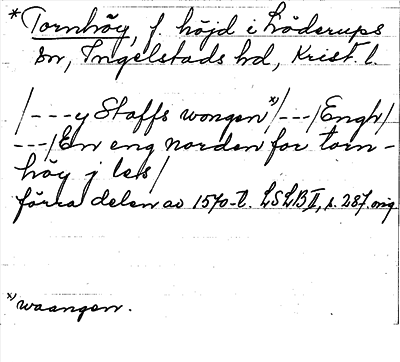 *Tornhöy, f. höjd i Löderups
sn, Ingelstads hd, Krist. l.
/---y Staffs wongen x)/---/Engh/
---/En eng norden for torn-
höy j les/
förra delen av 1570-t. LSLB II, s. 287. orig
x) waangen.